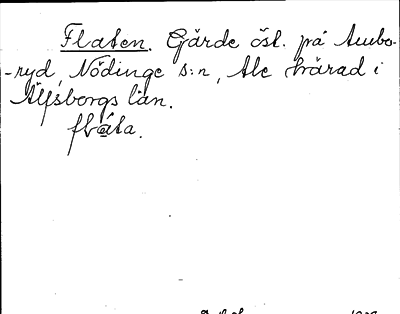 Flaten. Gärde öst. på Ambo-
-ryd, Nödinge s:n, Ale härad i
Älfsborgs län.
flåta.